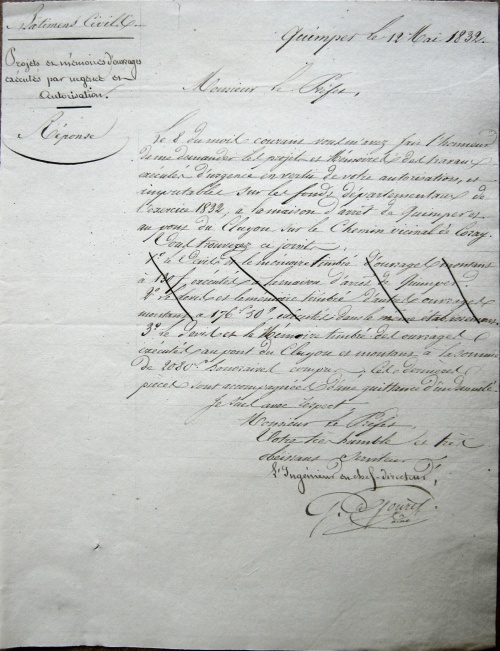 Batimens Civils
Projets et mémoires d'ouvrages
exécutés par urgence et
autorisation.
Réponse
Quimper le 12 Mai 1832.
Monsieur le Préfet,
Le 8 du mois courant vous m'avez fait l'honneur
de me demander les projets et Mémoires des travaux
exécutés d'urgence en vertu de votre autorisation, et
imputables sur les fonds départementaux de
l'exercice 1832, à la maison d'arrêt de Quimper et
au pont du Cluyou sur le Chemin vicinal de Coray.
Vous trouverez ci joints
1° le Devis et le mémoire timbré d'ouvrages montant
à exécutés à la maison d'arrêt de Quimper
2° le Devis et le mémoire timbré d'autres ouvrages
montant à 176f 30c exécutés dans le même
3° le Devis et le Mémoire timbré des ouvrages
exécutés au pont du Cluyou et montant à la somme
de honoraires compris. Les
pièces sont accompagnées d'une quittance
Je suis avec respect
Monsieur le Préfet,
Votre très humble et très
obéissant Serviteur
L'Ingénieur en chef-directeur,